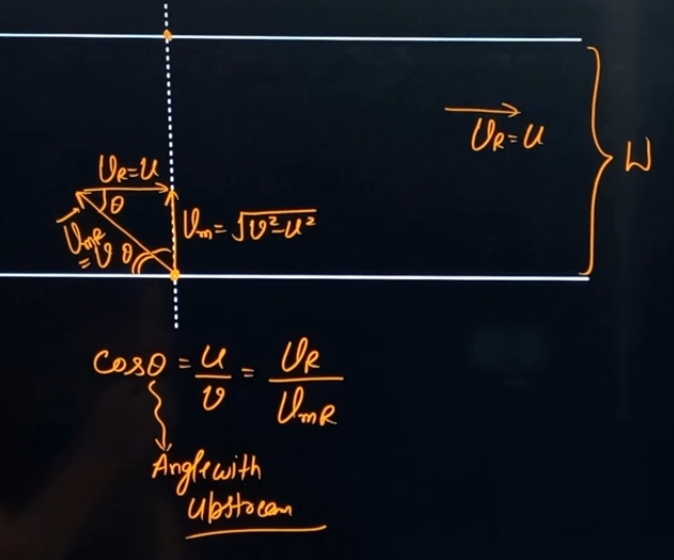 V_R = u
W
V_R = u
θ
V_m = √v²-u²
V_mR
= v
θ
cosθ = u/v = V_R/V_mR
Angle with
Upstream